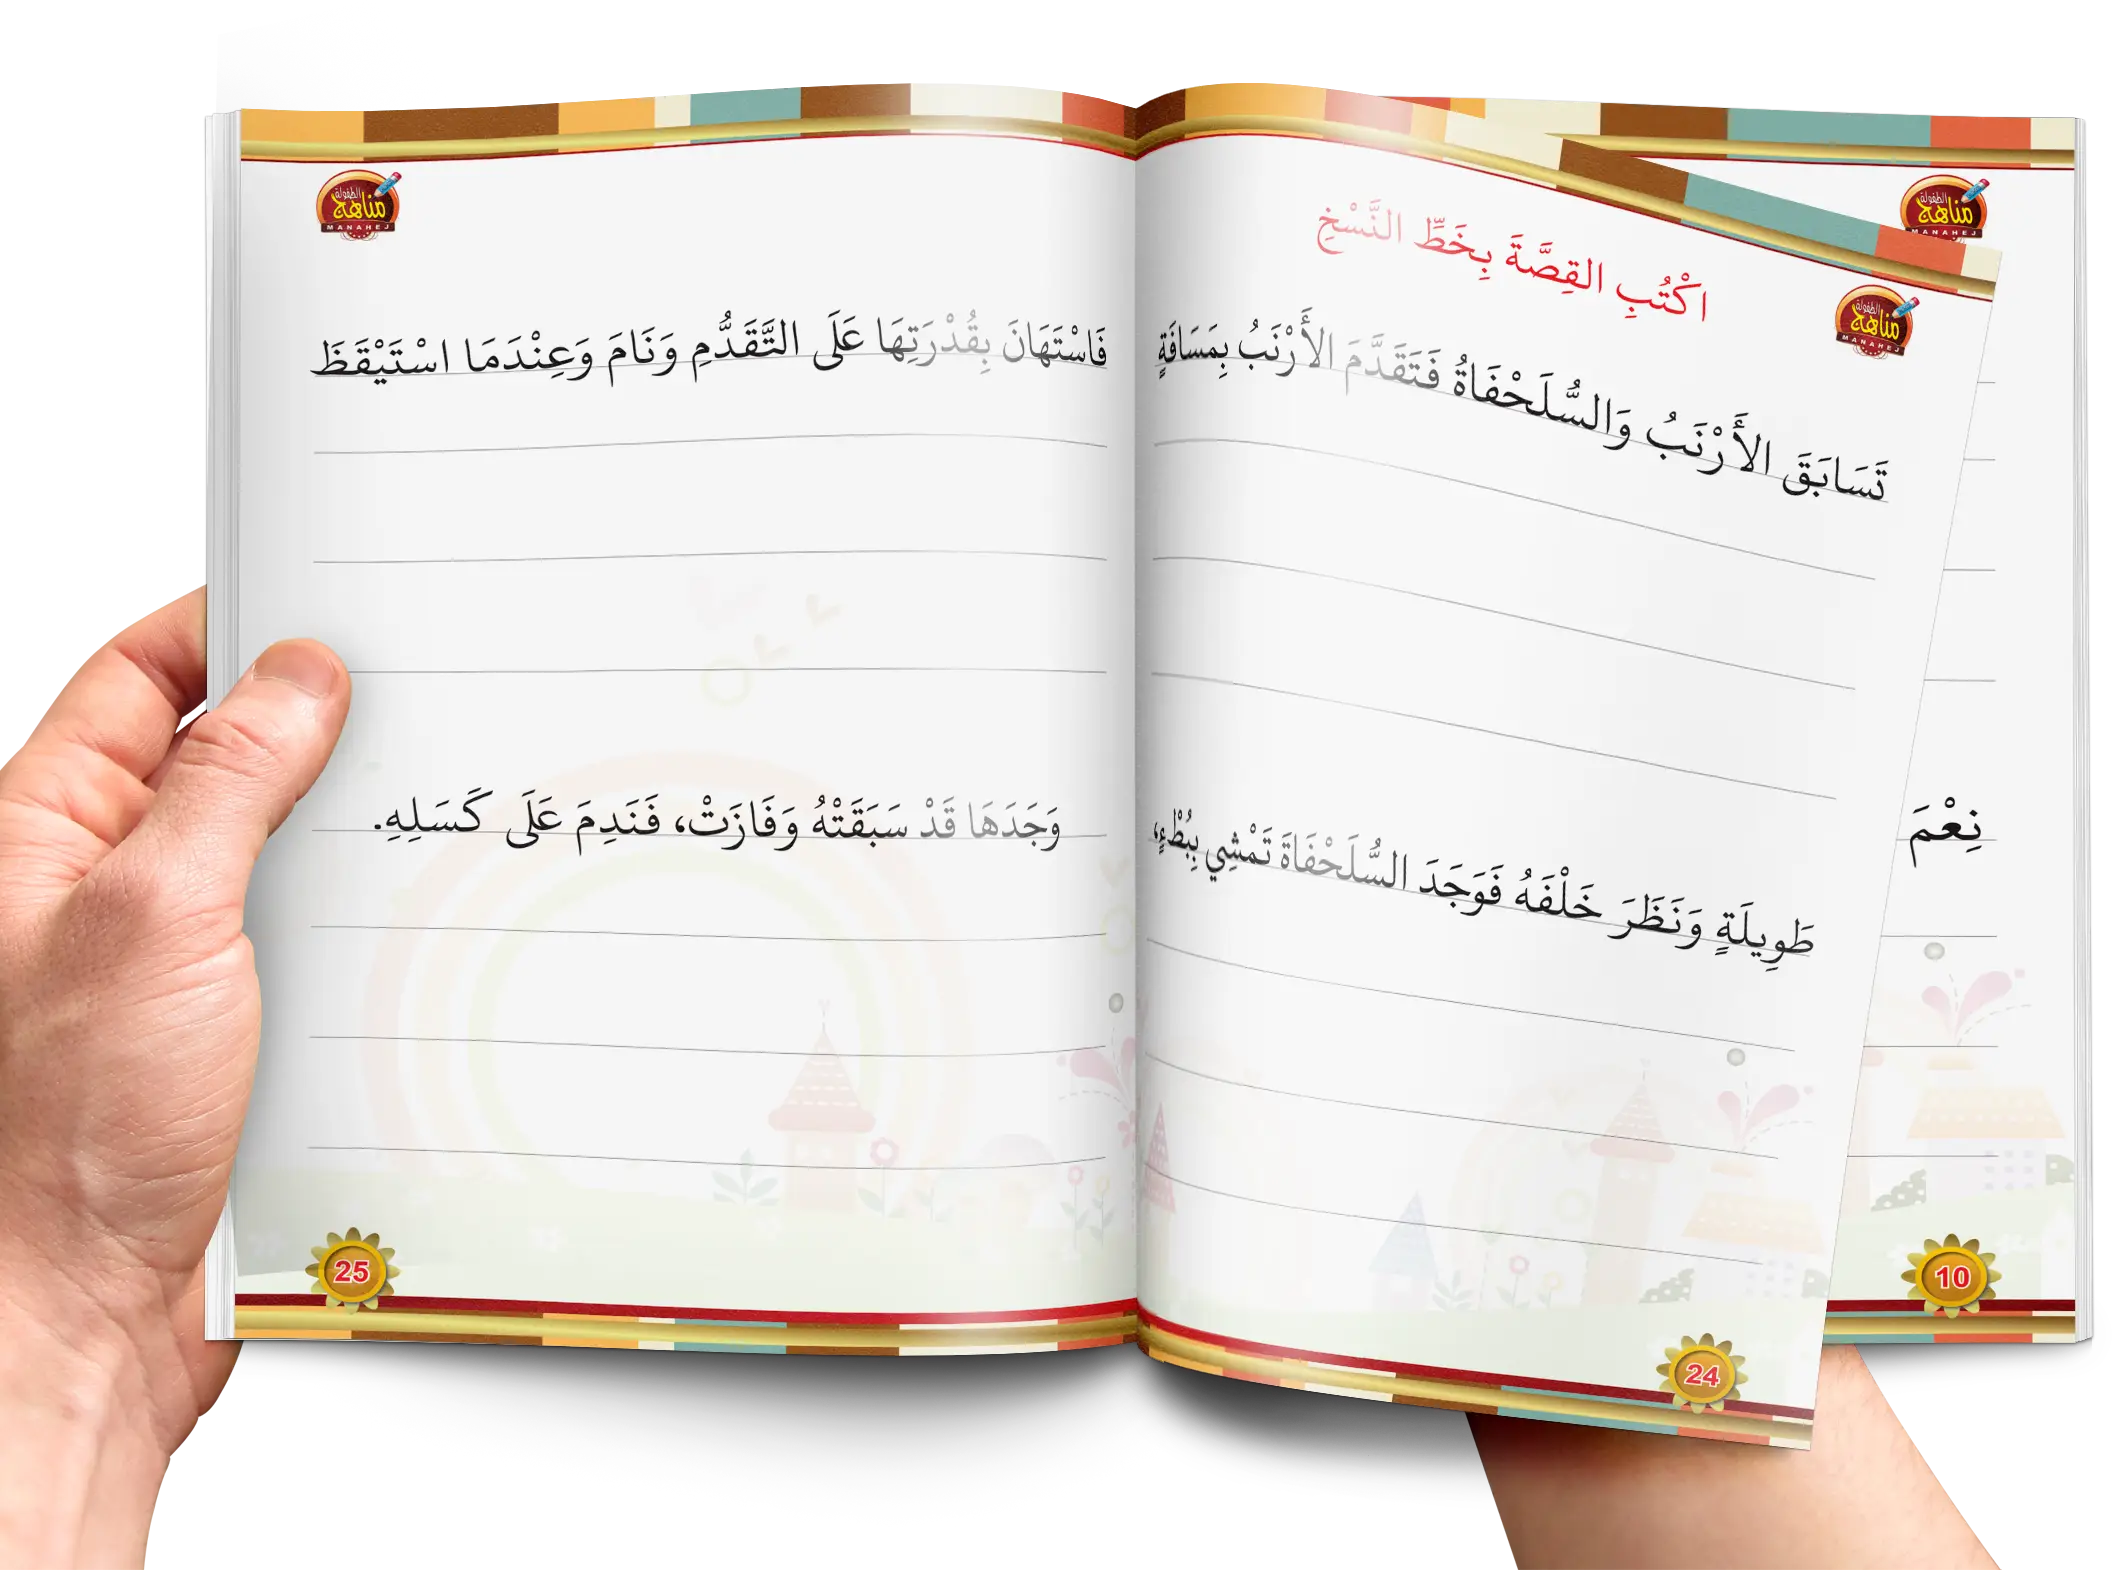 مناهج
الطفولة
MANAHEJ
اكْتُبِ القِصَّةَ بِخَطِّ النَّسْخِ
تَسَابَقَ الأَرْنَبُ وَالسُّلَحْفَاةُ فَتَقَدَّمَ الأَرْنَبُ بِمَسَافَةٍ
طَوِيلَةٍ وَنَظَرَ خَلْفَهُ فَوَجَدَ السُّلَحْفَاةَ تَمْشِي بِبُطْءٍ،
24
مناهج
الطفولة
MANAHEJ
فَاسْتَهَانَ بِقُدْرَتِهَا عَلَى التَّقَدُّمِ وَنَامَ وَعِنْدَمَا اسْتَيْقَظَ
وَجَدَهَا قَدْ سَبَقَتْهُ وَفَازَتْ، فَنَدِمَ عَلَى كَسَلِهِ.
25
مناهج
الطفولة
MANAHEJ
نِعْمَ
10